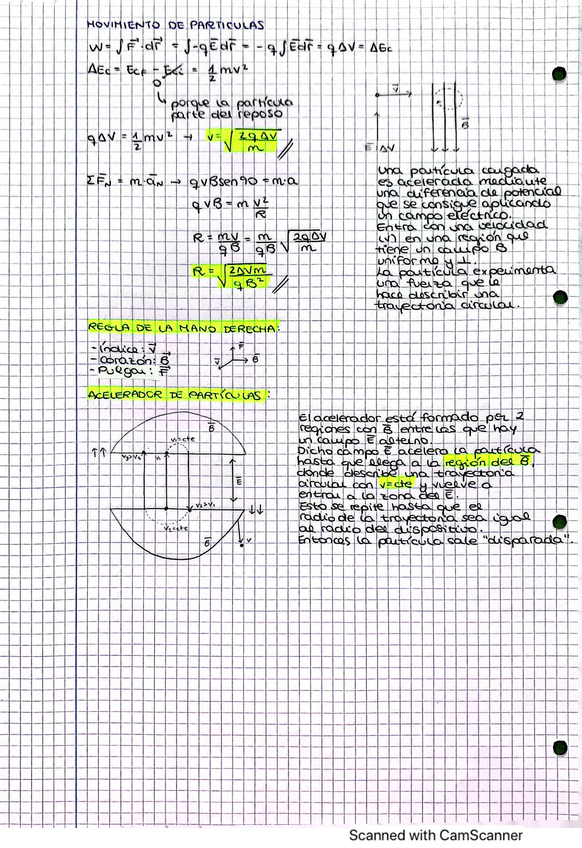 MOVIMIENTO DE PARTICULAS
W = ∫F⃗·dr⃗ = ∫-qE⃗dr⃗ = -q∫E⃗dr⃗ = qΔV = ΔEc
ΔEc = Ecf - Eci = 1/2 mv²
0
porque la partícula
parte del reposo
qΔV = 1/2 mv² → v = √(2qΔV/m)
ΣF⃗N = m·a⃗N → qvBsen90 = m·a
qvB = m v²/R
R = mv/qB = m/qB √(2qΔV/m)
R = √(2ΔVm/qB²)
v⃗
B⃗
E⃗ ΔV
Una partícula cargada
es acelerada mediante
una diferencia de potencial
que se consigue aplicando
un campo eléctrico.
Entra con una velocidad
(v) en una región que
tiene un campo B
uniforme y ⊥.
La partícula experimenta
una fuerza que le
hace describir una
trayectoria circular.
REGLA DE LA MANO DERECHA:
- Índice: v⃗
- Corazón: B⃗
- Pulgar: F⃗
F⃗
v⃗
B⃗
ACELERADOR DE PARTÍCULAS:
B⃗
v₁=cte
↑↑
v₂>v₁
v₁
E⃗
v₃>v₂
↓↓
v₂=cte
B⃗
v
El acelerador está formado por 2
regiones con B⃗ entre las que hay
un campo E⃗ alterno.
Dicho campo E⃗ acelera la partícula
hasta que llega a la región del B⃗,
donde describe una trayectoria
circular con v=cte y vuelve a
entrar a la zona del E⃗.
Esto se repite hasta que el
radio de la trayectoria sea igual
al radio del dispositivo.
Entonces la partícula sale "disparada".
Scanned with CamScanner